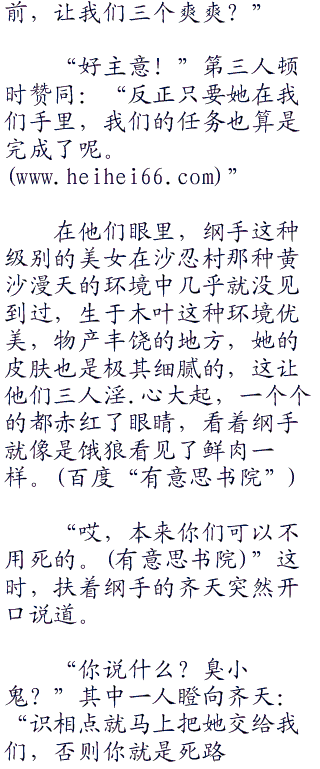 前，让我们三个爽爽？”
“好主意！”第三人顿
时赞同：“反正只要她在我
们手里，我们的任务也算是
完成了呢。
(www.heihei66.com)”
在他们眼里，纲手这种
级别的美女在沙忍村那种黄
沙漫天的环境中几乎就没见
到过，生于木叶这种环境优
美，物产丰饶的地方，她的
皮肤也是极其细腻的，这让
他们三人淫.心大起，一个个
的都赤红了眼睛，看着纲手
就像是饿狼看见了鲜肉一
样。(百度“有意思书院”)
“哎，本来你们可以不
用死的。(有意思书院)”这
时，扶着纲手的齐天突然开
口说道。
“你说什么？臭小
鬼？”其中一人瞪向齐天：
“识相点就马上把她交给我
们，否则你就是死路